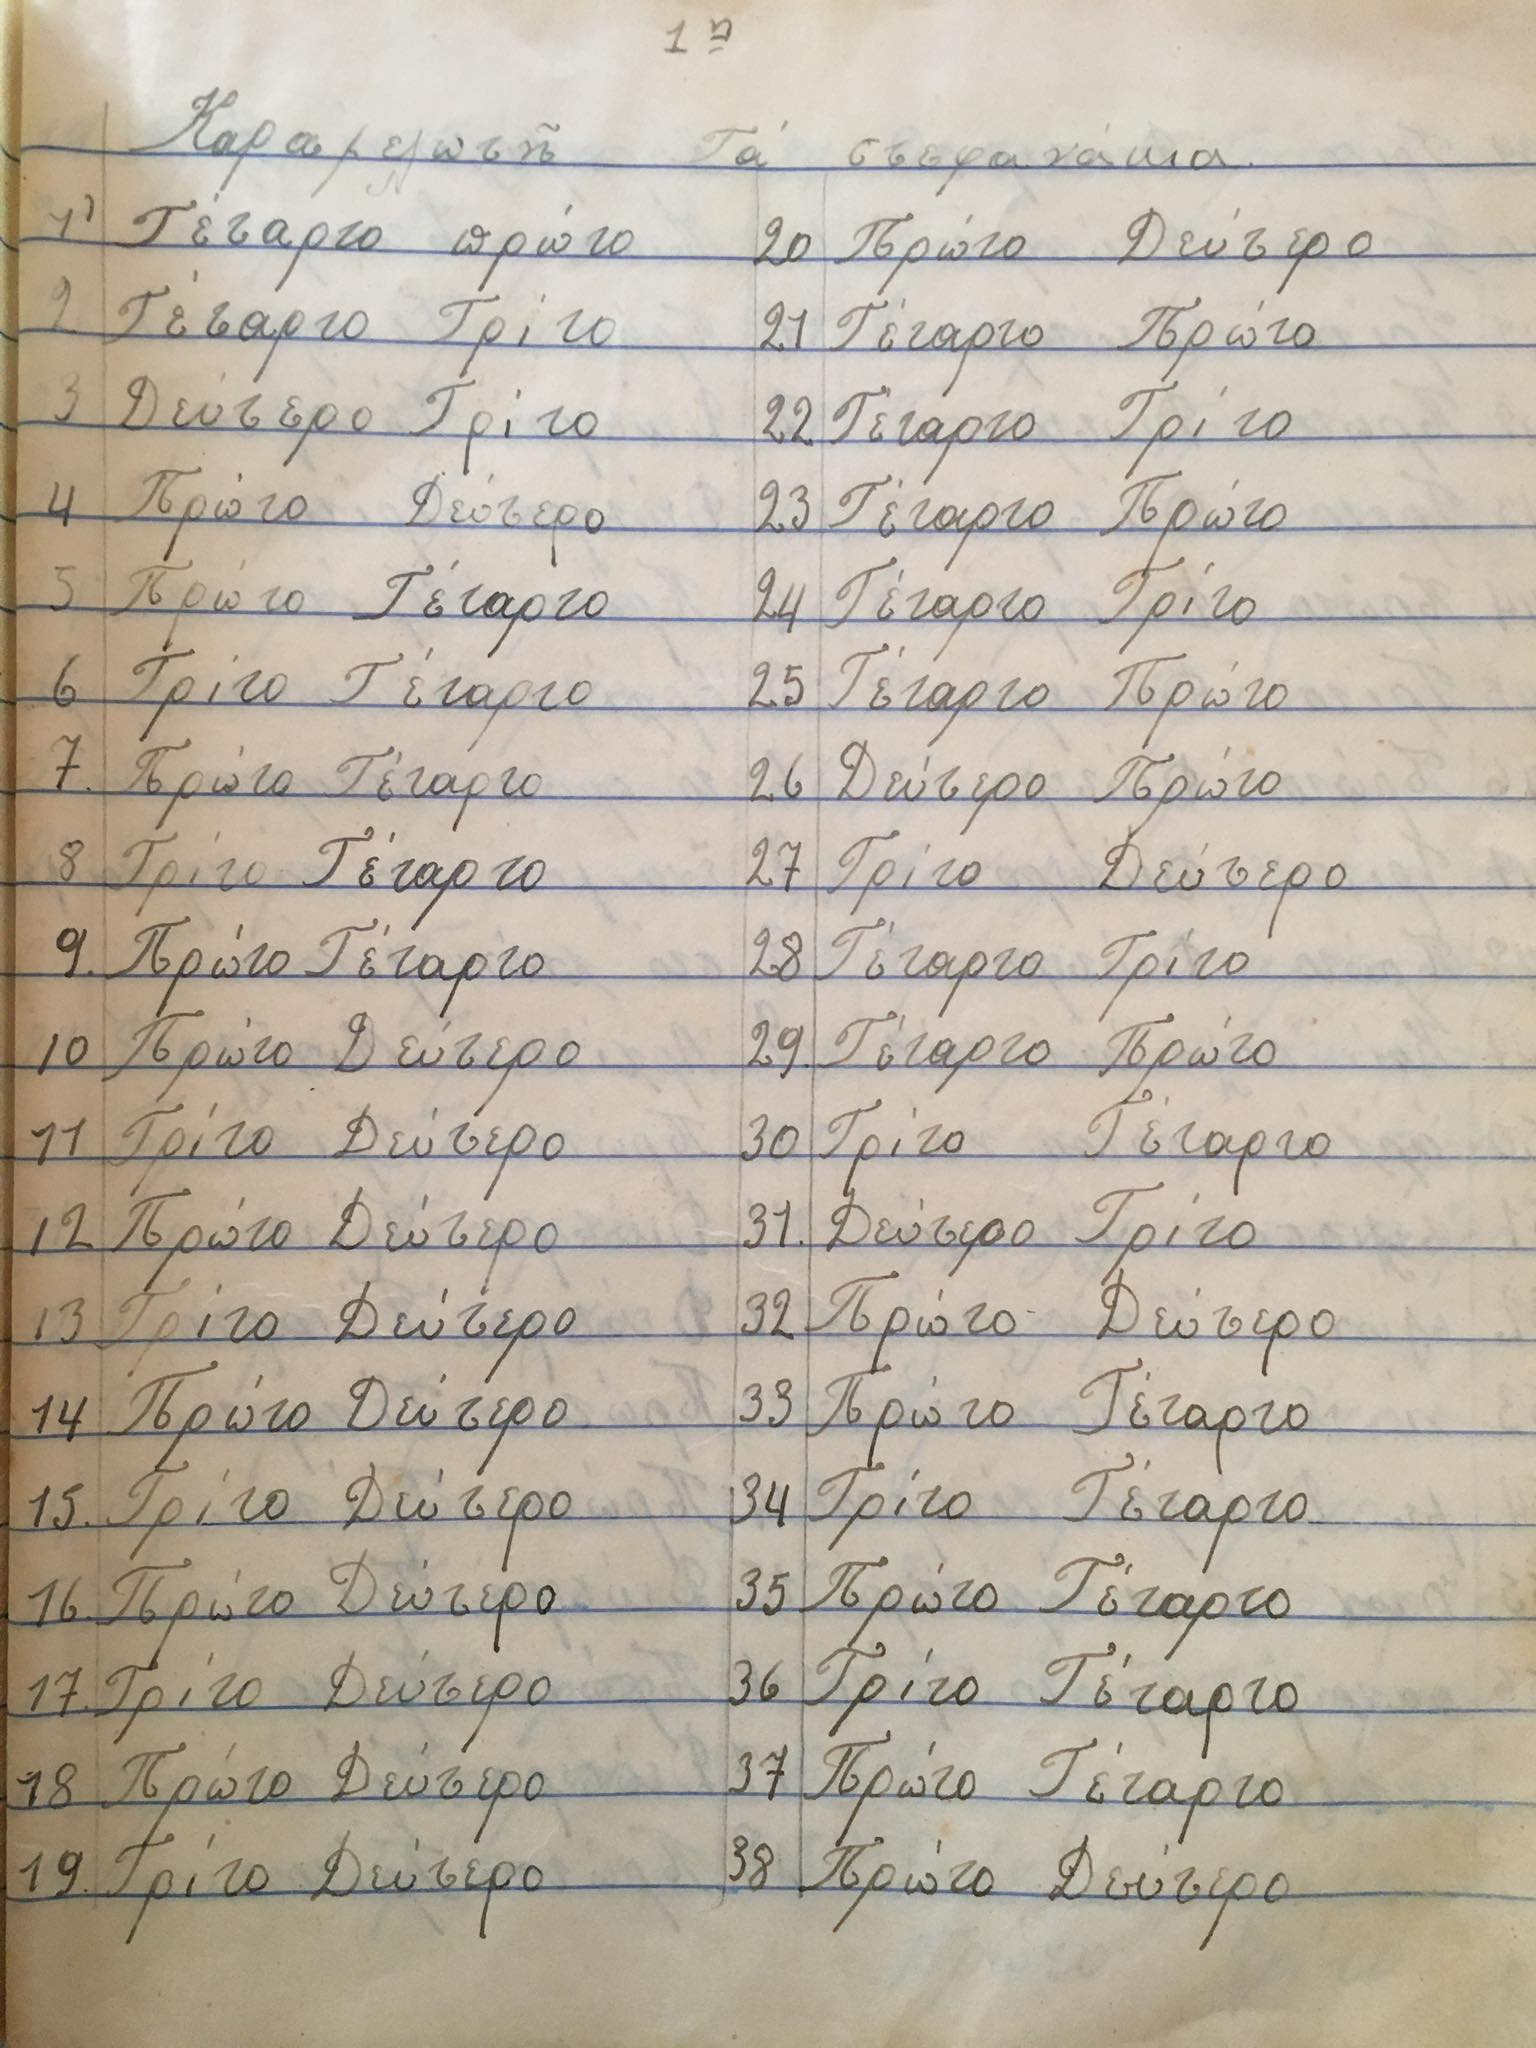 1η
Καραμελωτῆ Τά στεφανάκια.
1) Τέταρτο πρώτο
2 Τέταρτο Τρίτο
3 Δεύτερο Τρίτο
4 Πρώτο Δεύτερο
5 Πρώτο Τέταρτο
6 Τρίτο Τέταρτο
7. Πρώτο Τέταρτο
8 Τρίτο Τέταρτο
9. Πρώτο Τέταρτο
10 Πρώτο Δεύτερο
11 Τρίτο Δεύτερο
12 Πρώτο Δεύτερο
13 Τρίτο Δεύτερο
14 Πρώτο Δεύτερο
15. Τρίτο Δεύτερο
16. Πρώτο Δεύτερο
17. Τρίτο Δεύτερο
18 Πρώτο Δεύτερο
19. Τρίτο Δεύτερο
20 Πρώτο Δεύτερο
21 Τέταρτο Πρώτο
22 Τέταρτο Τρίτο
23 Τέταρτο Πρώτο
24 Τέταρτο Τρίτο
25 Τέταρτο Πρώτο
26 Δεύτερο Πρώτο
27 Τρίτο Δεύτερο
28 Τέταρτο Τρίτο
29. Τέταρτο Πρώτο
30 Τρίτο Τέταρτο
31. Δεύτερο Τρίτο
32 Πρώτο Δεύτερο
33 Πρώτο Τέταρτο
34 Τρίτο Τέταρτο
35 Πρώτο Τέταρτο
36 Τρίτο Τέταρτο
37 Πρώτο Τέταρτο
38 Πρώτο Δεύτερο